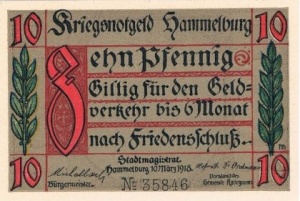 10 Kriegsnotgeld Hammelburg 10
Zehn Pfennig
Giltig für den Geld-
verkehr bis 6 Monat
nach Friedensschluß.
Stadtmagistrat.
Hammelburg, 10. März 1918.
Bürgermeister.
No 35846
10 10